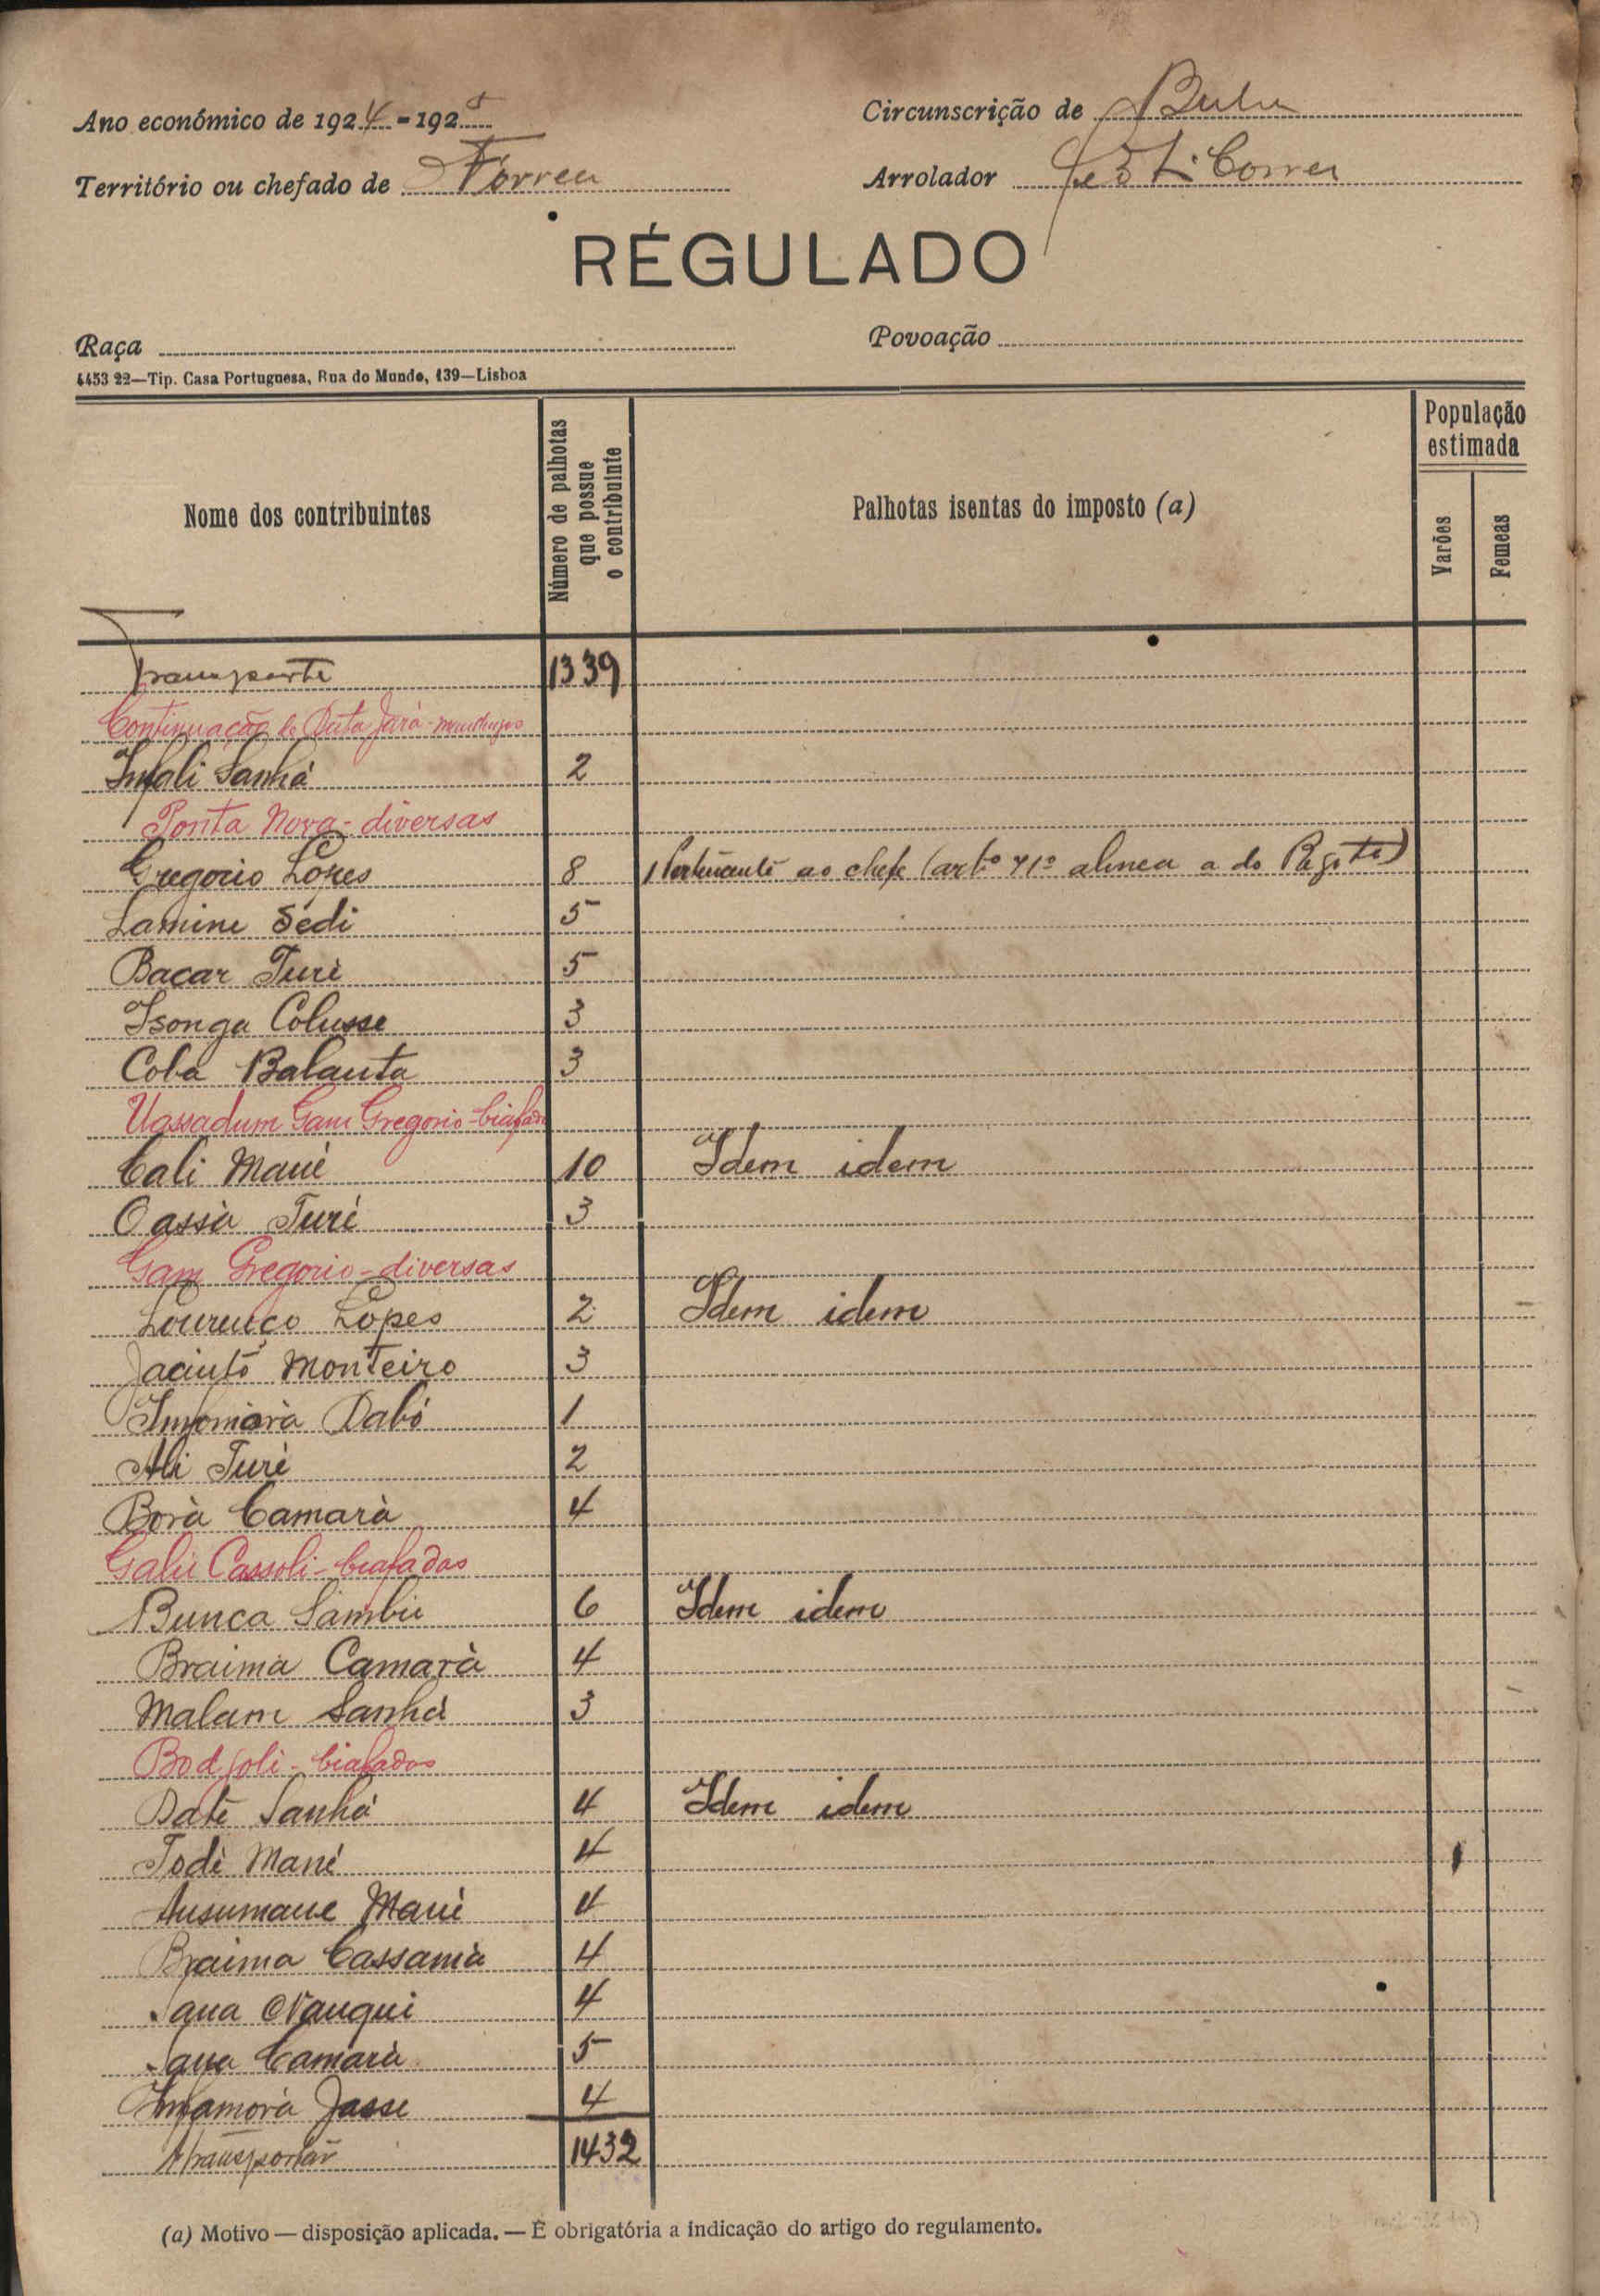 Ano económico de 1924-1925
Circunscrição de Buba
Território ou chefado de Forrea
Arrolador Correa
RÉGULADO
Raça
Povoação
4453 22—Tip. Casa Portuguesa, Rua do Mundo, 139—Lisboa
Nome dos contribuintes
Número de palhotas que possue o contribuinte
Palhotas isentas do imposto (a)
População estimada
Varões
Femeas
Transporte 1339
Continuação de Data Jará - mandingas
Infali Sanhá 2
Ponta Nova - diversas
Gregorio Lopes 8 1 Pertencente ao chefe (artº 71º alinea a do Regto)
Lamine Sedi 5
Bacar Turé 5
Isonga Colusse 3
Coba Balanta 3
Uassadum Gam Gregorio - biafada
Cali Mané 10 Idem idem
Cassà Turé 3
Gam Gregorio - diversas
Lourenço Lopes 2 Idem idem
Jacinto Monteiro 3
Dabó 1
Ali Turé 2
Borà Camarà 4
Galu Cassoli - biafadas
Bunca Sambu 6 Idem idem
Braima Camarà 4
Malam Sanhá 3
Bodjoli - biafadas
Daté Sanhá 4 Idem idem
Fodé Mané 4
Ansumane Mané 4
Braima Cassamà 4
Sana Nanqui 4
Sana Camarà 5
Infamorà Jasse 4
A transportar 1432
(a) Motivo — disposição aplicada. — É obrigatória a indicação do artigo do regulamento.